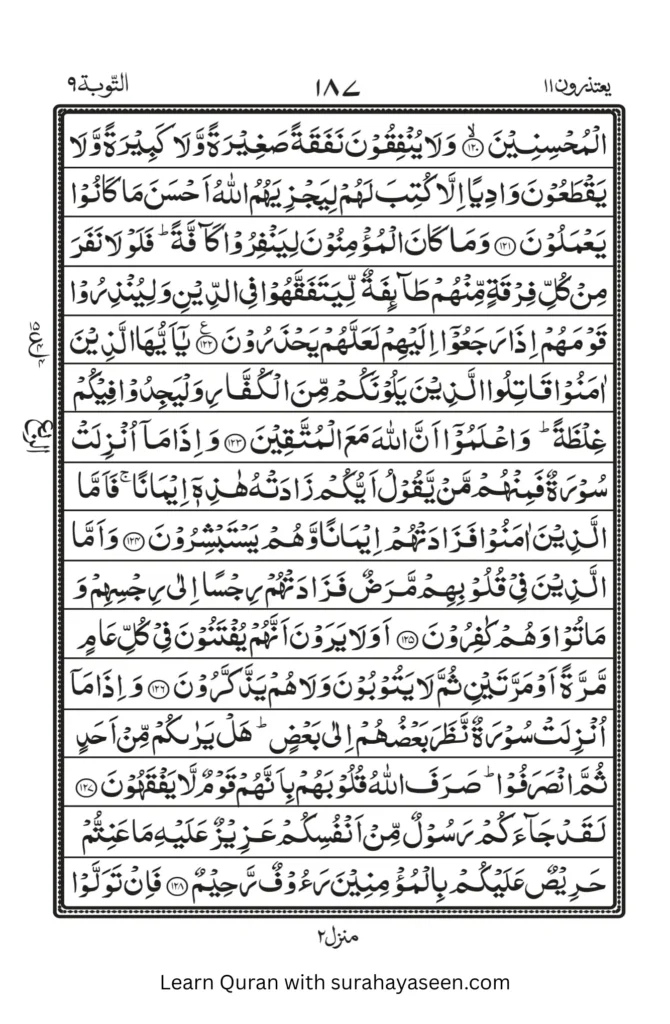 یعتذرون ۱۱ ۱۸۷ التّوبة ۹
الْمُحْسِنِیْنَ ﴿۱۲۰﴾ۙ وَلَا یُنْفِقُوْنَ نَفَقَةً صَغِیْرَةً وَّلَا كَبِیْرَةً وَّلَا
یَقْطَعُوْنَ وَادِیًا اِلَّا كُتِبَ لَهُمْ لِیَجْزِیَهُمُ اللّٰهُ اَحْسَنَ مَا كَانُوْا
یَعْمَلُوْنَ ﴿۱۲۱﴾ وَمَا كَانَ الْمُؤْمِنُوْنَ لِیَنْفِرُوْا كَآفَّةً ؕ فَلَوْلَا نَفَرَ
مِنْ كُلِّ فِرْقَةٍ مِّنْهُمْ طَآىِٕفَةٌ لِّیَتَفَقَّهُوْا فِی الدِّیْنِ وَلِیُنْذِرُوْا
قَوْمَهُمْ اِذَا رَجَعُوْۤا اِلَیْهِمْ لَعَلَّهُمْ یَحْذَرُوْنَ ﴿۱۲۲﴾ع یٰۤاَیُّهَا الَّذِیْنَ
اٰمَنُوْا قَاتِلُوا الَّذِیْنَ یَلُوْنَكُمْ مِّنَ الْكُفَّارِ وَلْیَجِدُوْا فِیْكُمْ
غِلْظَةً ؕ وَاعْلَمُوْۤا اَنَّ اللّٰهَ مَعَ الْمُتَّقِیْنَ ﴿۱۲۳﴾ وَاِذَا مَاۤ اُنْزِلَتْ
سُوْرَةٌ فَمِنْهُمْ مَّنْ یَّقُوْلُ اَیُّكُمْ زَادَتْهُ هٰذِهٖۤ اِیْمَانًا ۚ فَاَمَّا
الَّذِیْنَ اٰمَنُوْا فَزَادَتْهُمْ اِیْمَانًا وَّهُمْ یَسْتَبْشِرُوْنَ ﴿۱۲۴﴾ وَاَمَّا
الَّذِیْنَ فِیْ قُلُوْبِهِمْ مَّرَضٌ فَزَادَتْهُمْ رِجْسًا اِلٰی رِجْسِهِمْ وَ
مَاتُوْا وَهُمْ كٰفِرُوْنَ ﴿۱۲۵﴾ اَوَلَا یَرَوْنَ اَنَّهُمْ یُفْتَنُوْنَ فِیْ كُلِّ عَامٍ
مَّرَّةً اَوْ مَرَّتَیْنِ ثُمَّ لَا یَتُوْبُوْنَ وَلَا هُمْ یَذَّكَّرُوْنَ ﴿۱۲۶﴾ وَاِذَا مَاۤ
اُنْزِلَتْ سُوْرَةٌ نَّظَرَ بَعْضُهُمْ اِلٰی بَعْضٍ ؕ هَلْ یَرٰىكُمْ مِّنْ اَحَدٍ
ثُمَّ انْصَرَفُوْا ؕ صَرَفَ اللّٰهُ قُلُوْبَهُمْ بِاَنَّهُمْ قَوْمٌ لَّا یَفْقَهُوْنَ ﴿۱۲۷﴾
لَقَدْ جَآءَكُمْ رَسُوْلٌ مِّنْ اَنْفُسِكُمْ عَزِیْزٌ عَلَیْهِ مَا عَنِتُّمْ
حَرِیْصٌ عَلَیْكُمْ بِالْمُؤْمِنِیْنَ رَءُوْفٌ رَّحِیْمٌ ﴿۱۲۸﴾ فَاِنْ تَوَلَّوْا
الربع
منزل ۲
Learn Quran with surahayaseen.com